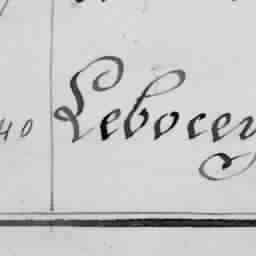 40 Lebocey